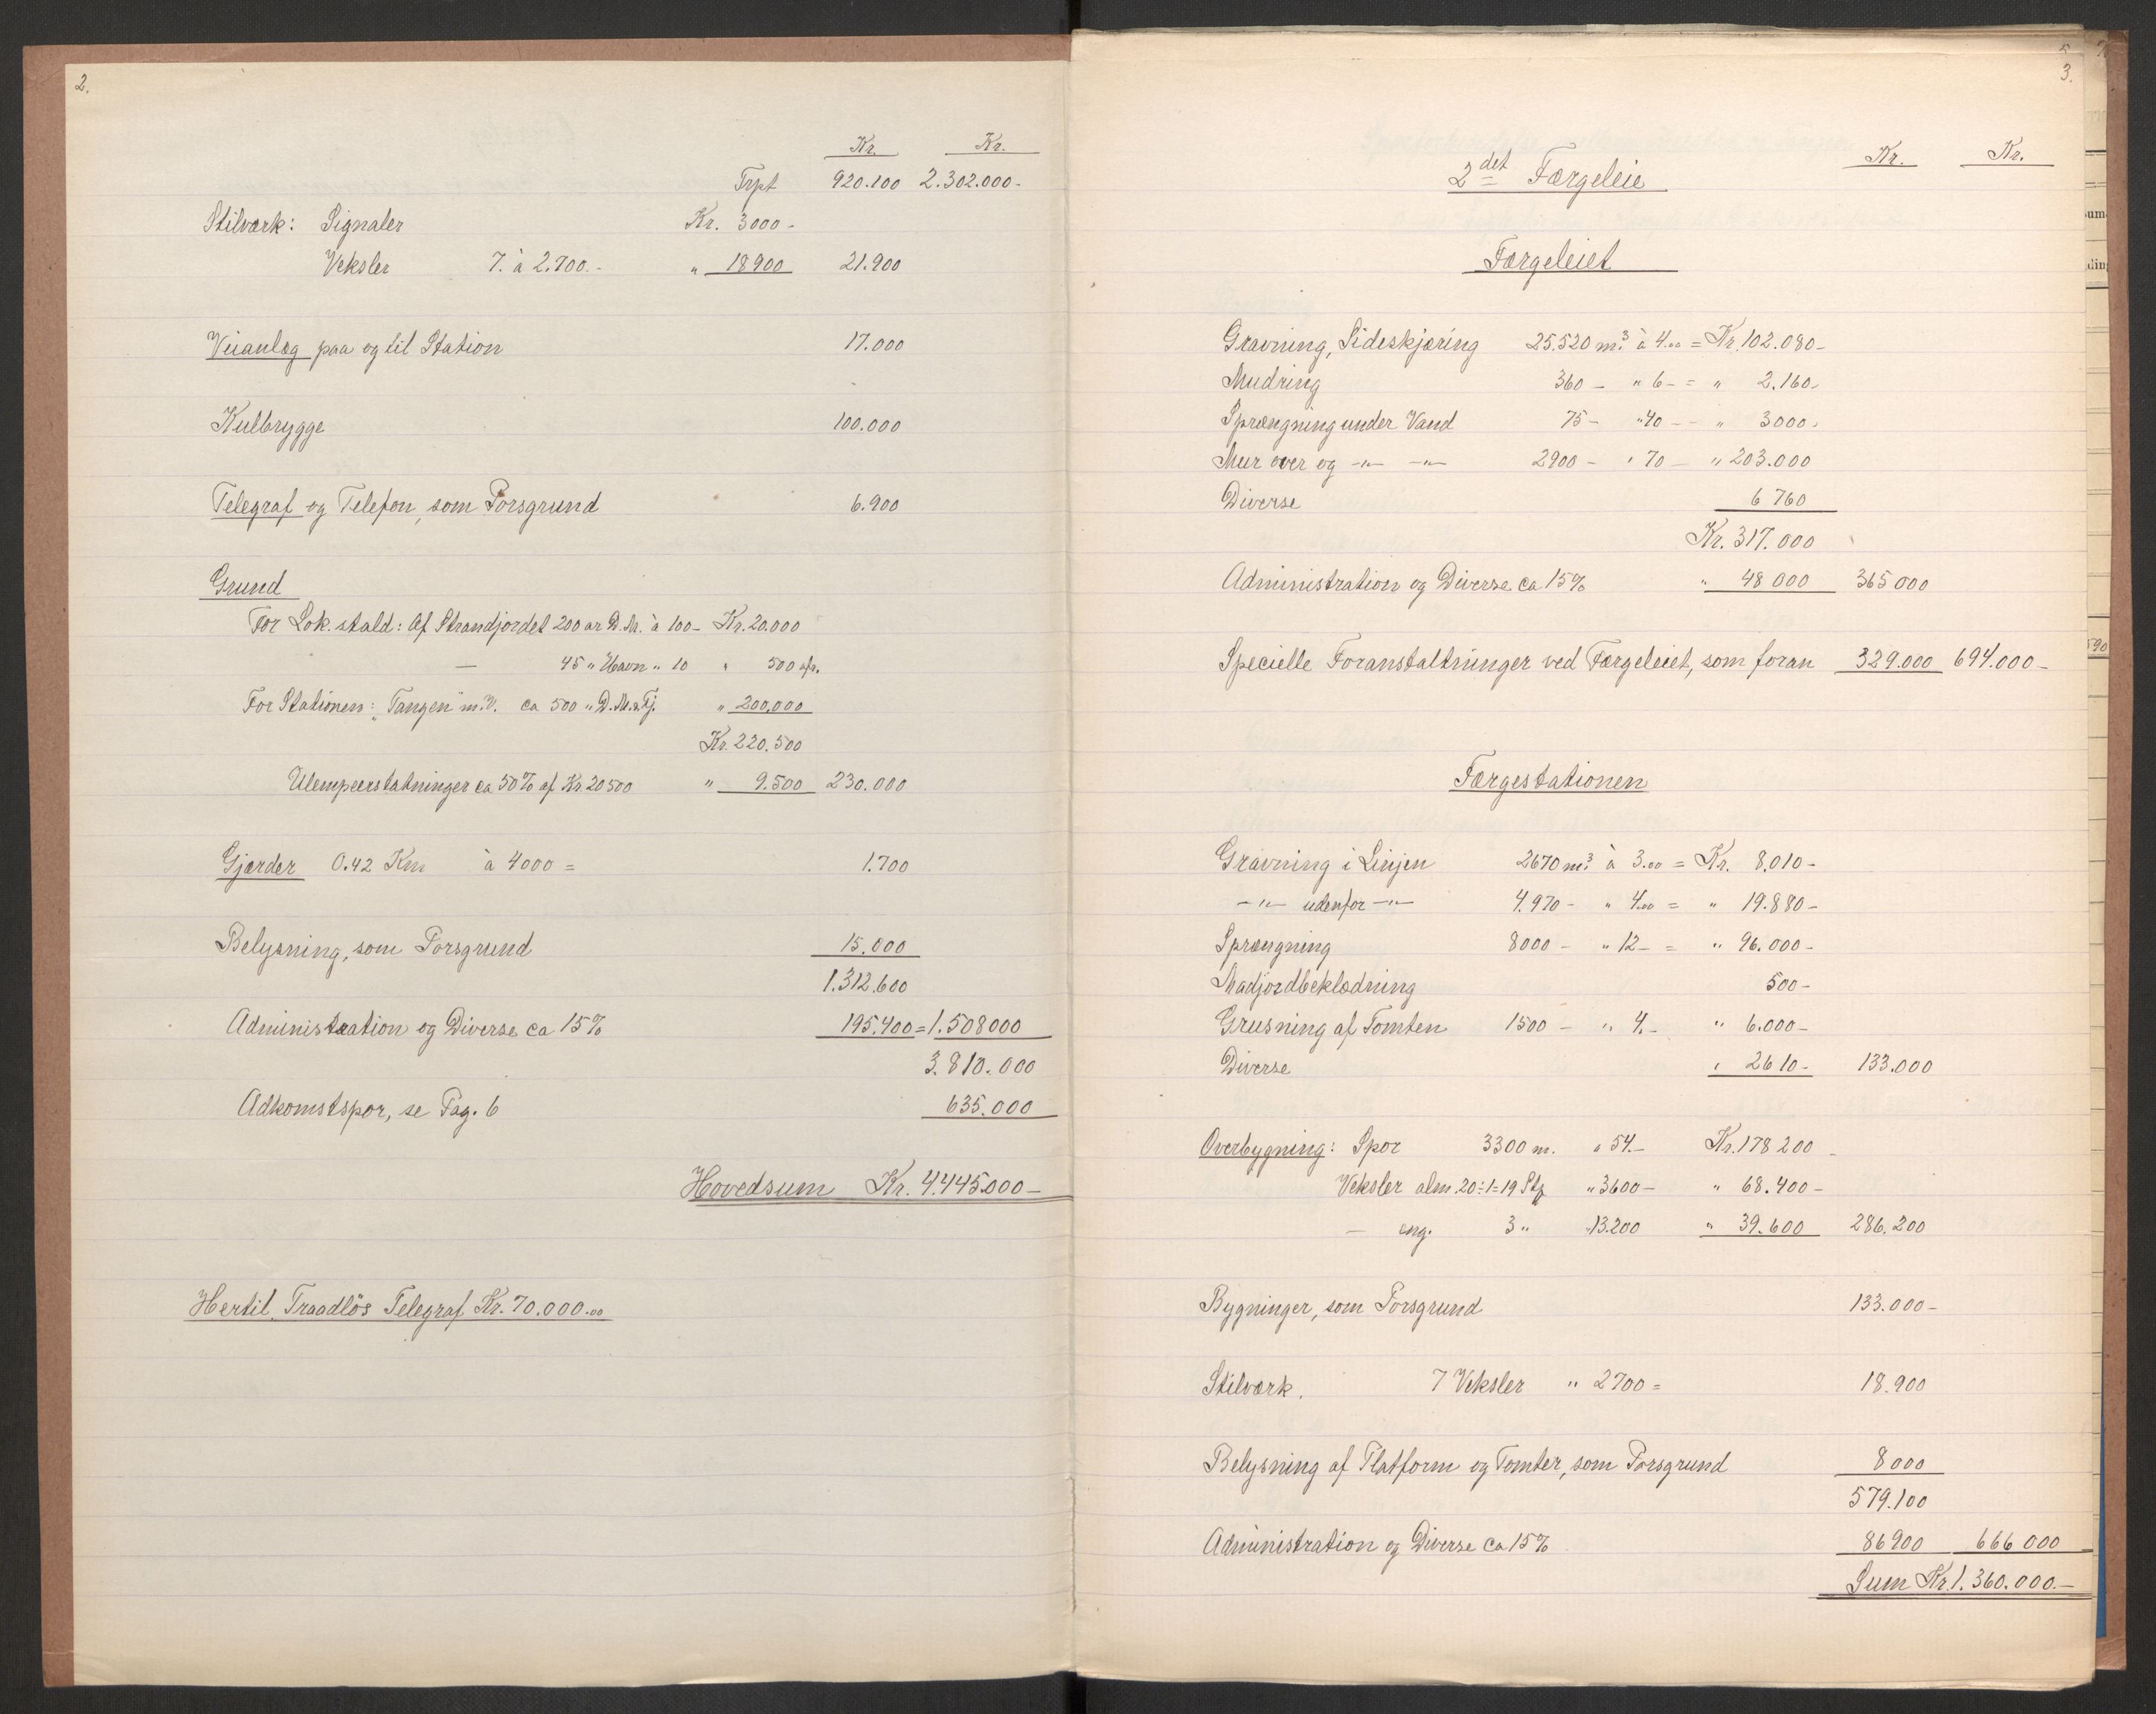 2.
Kr. Kr.
Trpt 920.100 2.302.000-
Stilværk: Signaler Kr. 3000-
Veksler 7. à 2.700.- " 18900 21.900
Veianlæg paa og til Station 17.000
Kulbrygge 100.000
Telegraf og Telefon, som Porsgrund 6.900
Grund
For Lok. stald: Af Strandjordet 200 ar D.M. à 100- Kr. 20.000
— 45 " Havn " 10 " 500
For Stationen: "Tangen" m.v. ca 500 " D.M. " 200.000
Kr. 220.500
Ulempeerstatninger ca 50% af Kr 20500 " 9.500 230.000
Gjærder 0.42 Km à 4000 = 1.700
Belysning, som Porsgrund 15.000
1.312.600
Administration og Diverse ca 15% 195.400 = 1.508000
3.810.000
Adkomstspor, se Pag. 6 635.000
Hovedsum Kr. 4.445.000-
Hertil Traadløs Telegraf Kr. 70.000.00
5
3.
Kr. Kr.
2det Færgeleie
Færgeleiet
Gravning, Sideskjæring 25.520 m.3 à 4.00 = Kr. 102.080-
Mudring 360 - " 6 - = " 2.160-
Sprængning under Vand 75 - " 40 - - " 3000-
Mur over og -"- -"- 2900 - " 70 - " 203.000
Diverse 6 760
Kr. 317.000
Administration og Diverse ca 15% " 48 000 365 000
Specielle Foranstaltninger ved Færgeleiet, som foran 329.000 694.000-
Færgestationen
Gravning i Linjen 2670 m.3 à 3.00 = Kr. 8.010-
-"- udenfor -"- 4.970 - " 4.00 = " 19.880-
Sprængning 8000 - " 12- = " 96.000-
Madjordbeklædning 500-
Grusning af Tomten 1500 - " 4.- " 6.000-
Diverse " 2610- 133.000
Overbygning: Spor 3300 m. " 54.- Kr. 178 200 -
Veksler alm. 20÷1=19 Stk " 3600- " 68.400-
— eng. 3 " " 13.200 " 39.600 286.200
Bygninger, som Porsgrund 133.000-
Stilværk. 7 Veksler " 2700 = 18.900
Belysning af Platform og Tomter, som Porsgrund 8000
579.100
Administration og Diverse ca 15% 86900 666 000
Sum Kr. 1.360.000.-